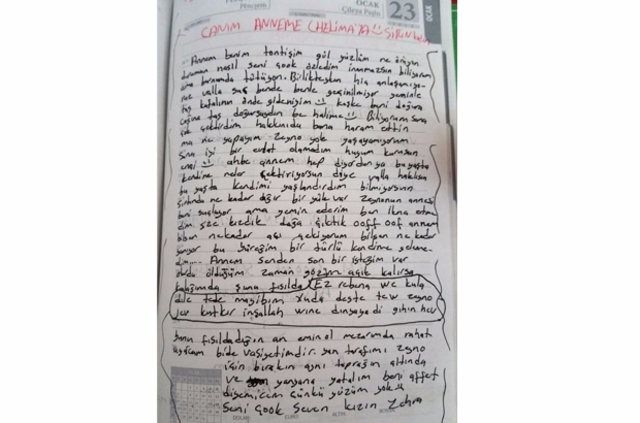 OCAK
Çileye Paşlı
23
OCAK
CANIM ANNEME (HELİMA'YA) ŞİRİN
Annem benim tontişim gül yüzlüm ne
nasıl seni çook özledim inanmazsın biliyorum
burnumda tütüyon. Bilikteyken hiç
valla saç bende bende geçinilmiyor yeminle
taş kafalının önde gideniyim keşke beni doğura
cağına taş doğursaydın be halime Biliyorum sana
çok çektirdim hakkınıda bana haram ettin
ma ne yapayım zeyno yok yaşayamıyorum
Sana iyi bir evlat olamadım huyum kurusun
ahbe annem hep diyordun ya bu yaşta
kendine neler çektiriyorsun diye valla haklısın
bu yaşta kendimi yaşlandırdım bilmiyorsun
sırtımda ne kadar ağır bir yük var zeynonun annesi
beni suçluyor ama yemin ederim ben ikna etme
dim size kızdık dağa çıktık ooff oof annem
bilsen nekadar acı çekiyorum bilsen ne kadar
yanıyor bu yüreğim bir türlü kendime geleme
dim..... Annem senden son bir isteğim var
olurda öldüğüm zaman gözüm açık kalırsa
kulağımda şunu fısılda (EZ rebuna we kula
tede mayibım xuda deste tew zeyno
jev kutkır inşallah wine dunyaye di gihın hev
bunu fısıldadığın an emin ol mezarımda rahat
uyicam bide vasiyetimdir. yan tarafımı zeyno
için bırakın aynı toprağın altında
ve yanyana yatalım beni affet
diyemicem çünkü yüzüm yok
Seni çook seven kızın Zehra